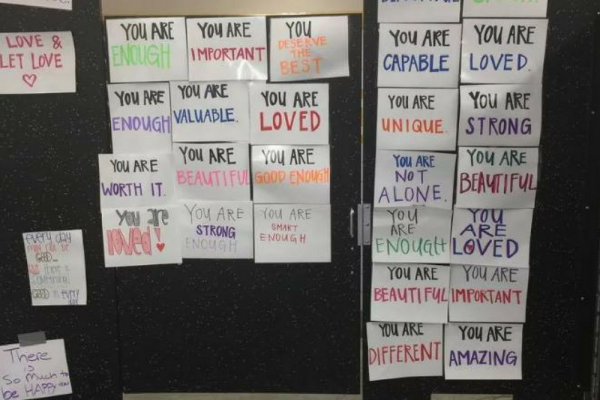 LOVE &
LET LOVE
YOU ARE
ENOUGH
YOU ARE
IMPORTANT
YOU
DESERVE
THE
BEST
YOU ARE
ENOUGH
YOU ARE
VALUABLE.
YOU ARE
LOVED
YOU ARE
WORTH IT.
YOU ARE
BEAUTIFUL
YOU ARE
GOOD ENOUGH
You are
loved!
YOU ARE
STRONG
ENOUGH
YOU ARE
SMART
ENOUGH
YOU ARE
CAPABLE
YOU ARE
LOVED.
YOU ARE
UNIQUE.
YOU ARE
STRONG
YOU ARE
NOT
ALONE.
YOU ARE
BEAUTIFUL
YOU
ARE
ENOUGH
YOU
ARE
LOVED
YOU ARE
BEAUTIFUL
YOU ARE
IMPORTANT
YOU ARE
DIFFERENT
YOU ARE
AMAZING
every day
GOOD
GOOD in every
There
is
So much to
be HAPPY